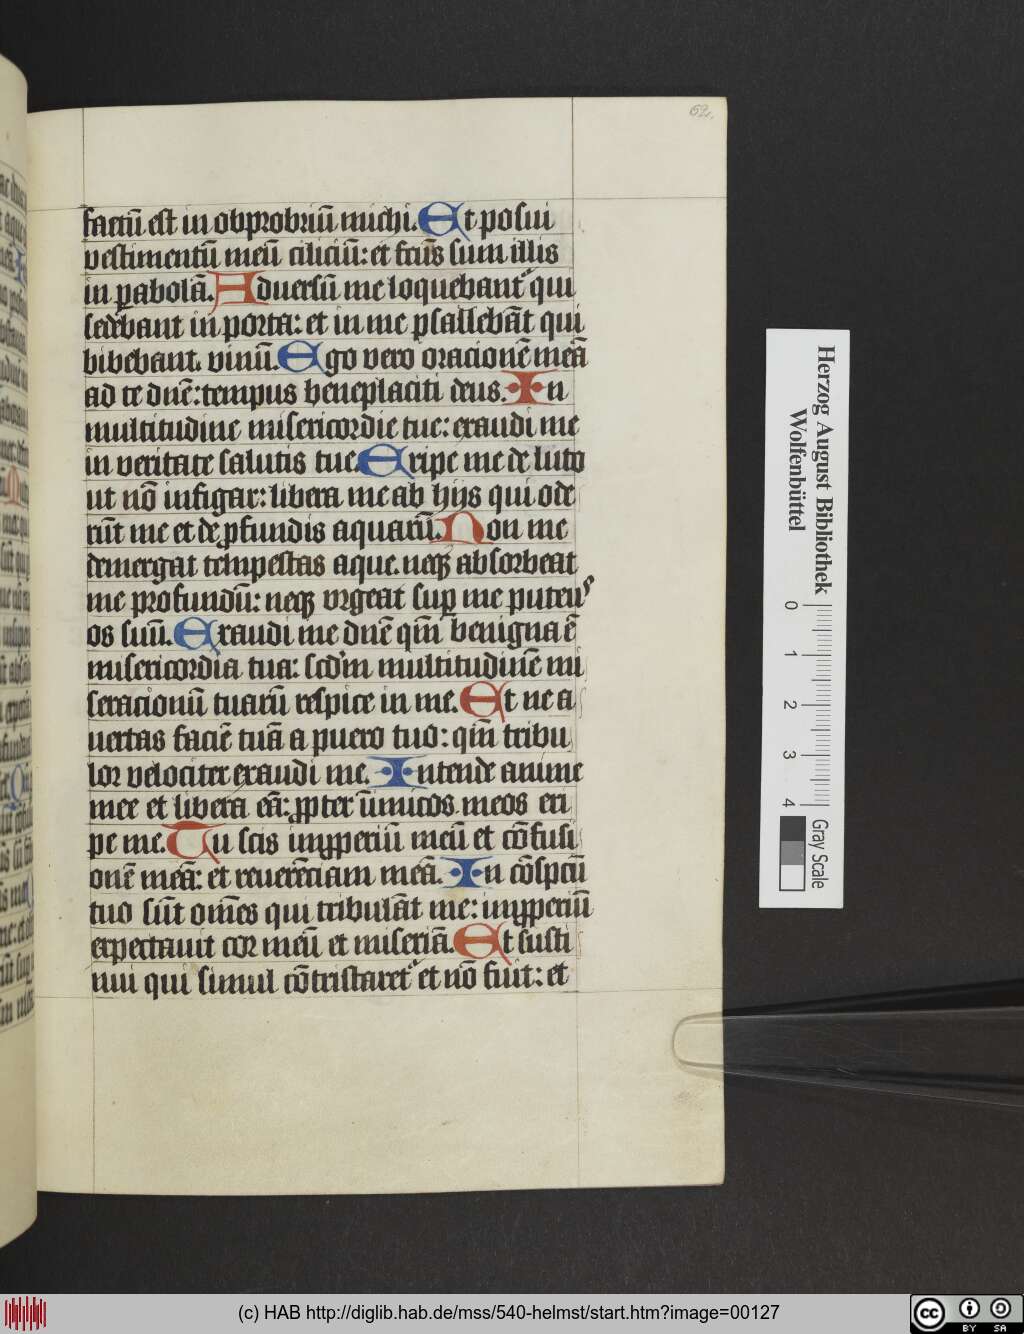 62.
factū est in obprobriū michi. Et posui
vestimentū meū ciliciū: et fcūs sum illis
in ꝑabolā. Aduersū me loquebant᷑ qui
sedebant in porta: et in me psallebāt qui
bibebant vinū. Ego vero oracionē meā
ad te dnē: tempus beneplaciti deus. In
multitudine misericordie tue: exaudi me
in veritate salutis tue. Eripe me de luto
ut nō infigar: libera me ab hijs qui ode
rūt me et de ꝓfundis aquarū. Non me
demergat tempestas aque. neqꝫ absorbeat
me profundū: neqꝫ vrgeat suꝑ me puteuꝰ
os suū. Exaudi me dnē qm̄ benigna ē
misericordia tua: scdm̄ multitudinē mi
seracionū tuarū respice in me. Et ne a
uertas faciē tuā a puero tuo: qm̄ tribu
lor velociter exaudi me. Intende anime
mee et libera eā: ꝓpter īnimicos meos eri
pe me. Tu scis imꝓperiū meū et cōfusi
onē meā: et reuerēciam meā. In cōspctū
tuo sūt om̄es qui tribulāt me: imꝓperiū
expectauit cor meū et miseriā. Et susti
nui qui simul cōtristaret᷑ et nō fuit: et
Herzog August Bibliothek
Wolfenbüttel
0 1 2 3 4
Gray Scale
(c) HAB http://diglib.hab.de/mss/540-helmst/start.htm?image=00127
cc BY SA